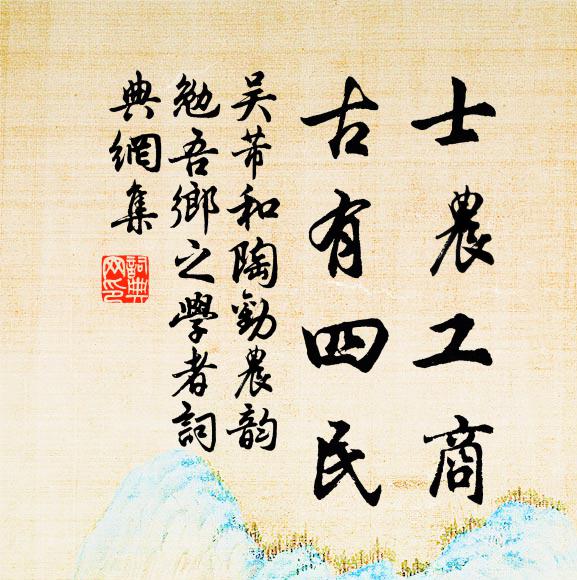 士農工商
古有四民
吳芾和陶勸農韵
勉吾鄉之學者詞
典網集
詞典網印